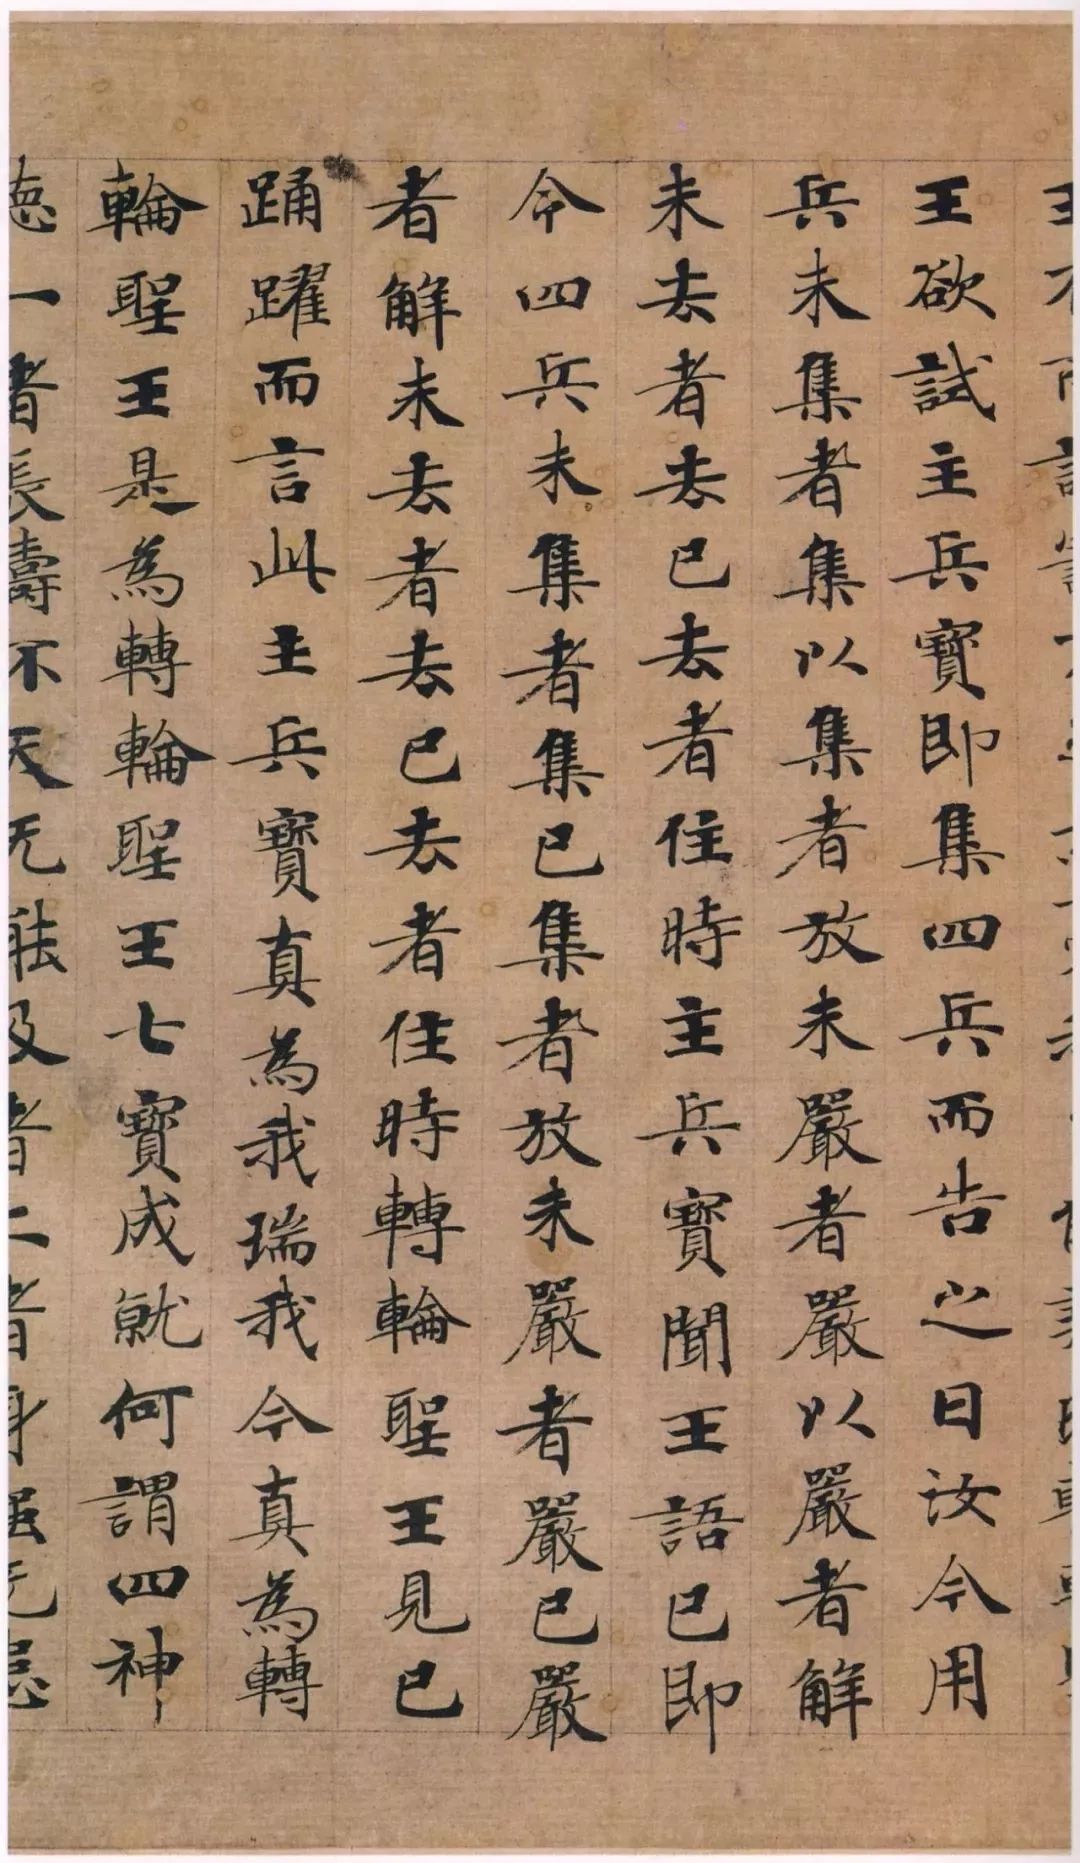 王欲試主兵寶即集四兵而告之曰汝今用
兵未集者集以集者放未嚴者嚴以嚴者解
未去者去已去者住時主兵寶聞王語已即
令四兵未集者集已集者放未嚴者嚴已嚴
者解未去者去已去者住時轉輪聖王見已
踊躍而言此主兵寶真為我瑞我今真為轉
輪聖王是為轉輪聖王七寶成就何謂四神
徳一者長壽不夭无能及者二者身强无患